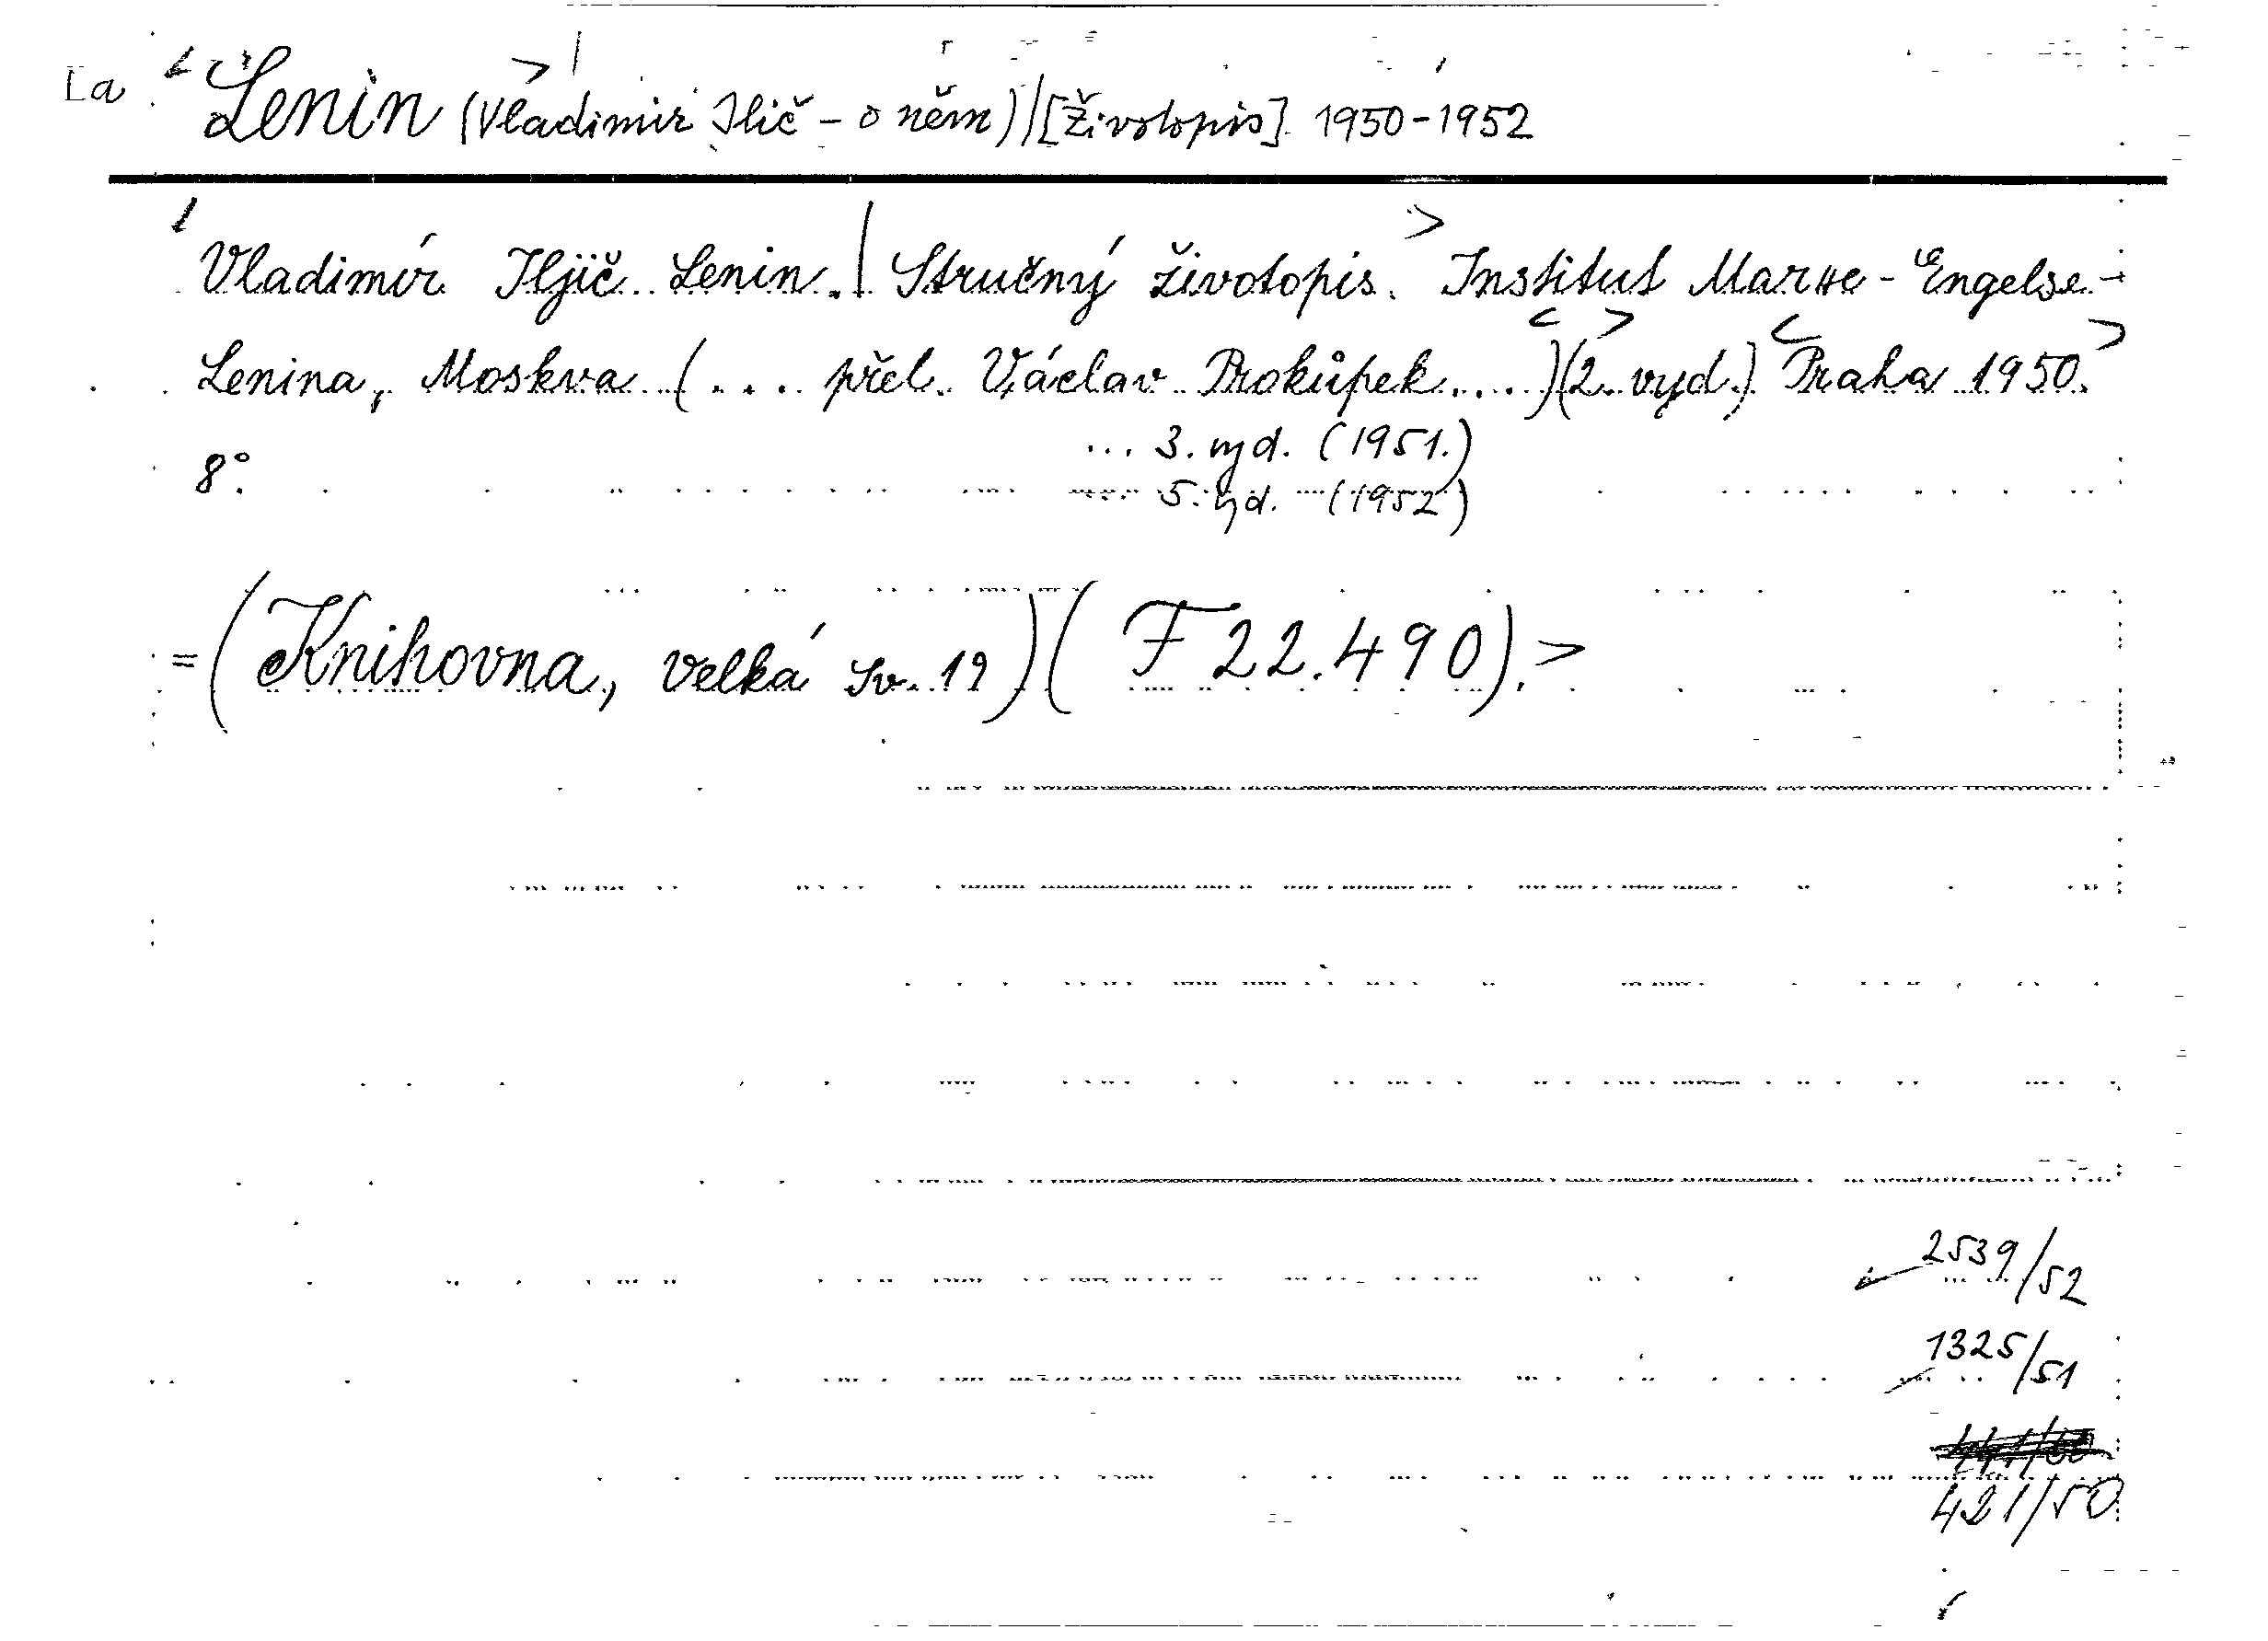 La Lenin (Vladimir Ilič - o něm) | [Životopis] 1950-1952
Vladimír Iljič Lenin. | Stručný životopis. Institut Marxe - Engelse -
Lenina, Moskva (.... přel. Václav Prokůpek ....) (2. vyd.) Praha 1950.
... 3. vyd. (1951.)
8°.
5. vyd. (1952)
= (Knihovna, velká sv. 19) (F 22.490).
2539/52
1325/51
421/50